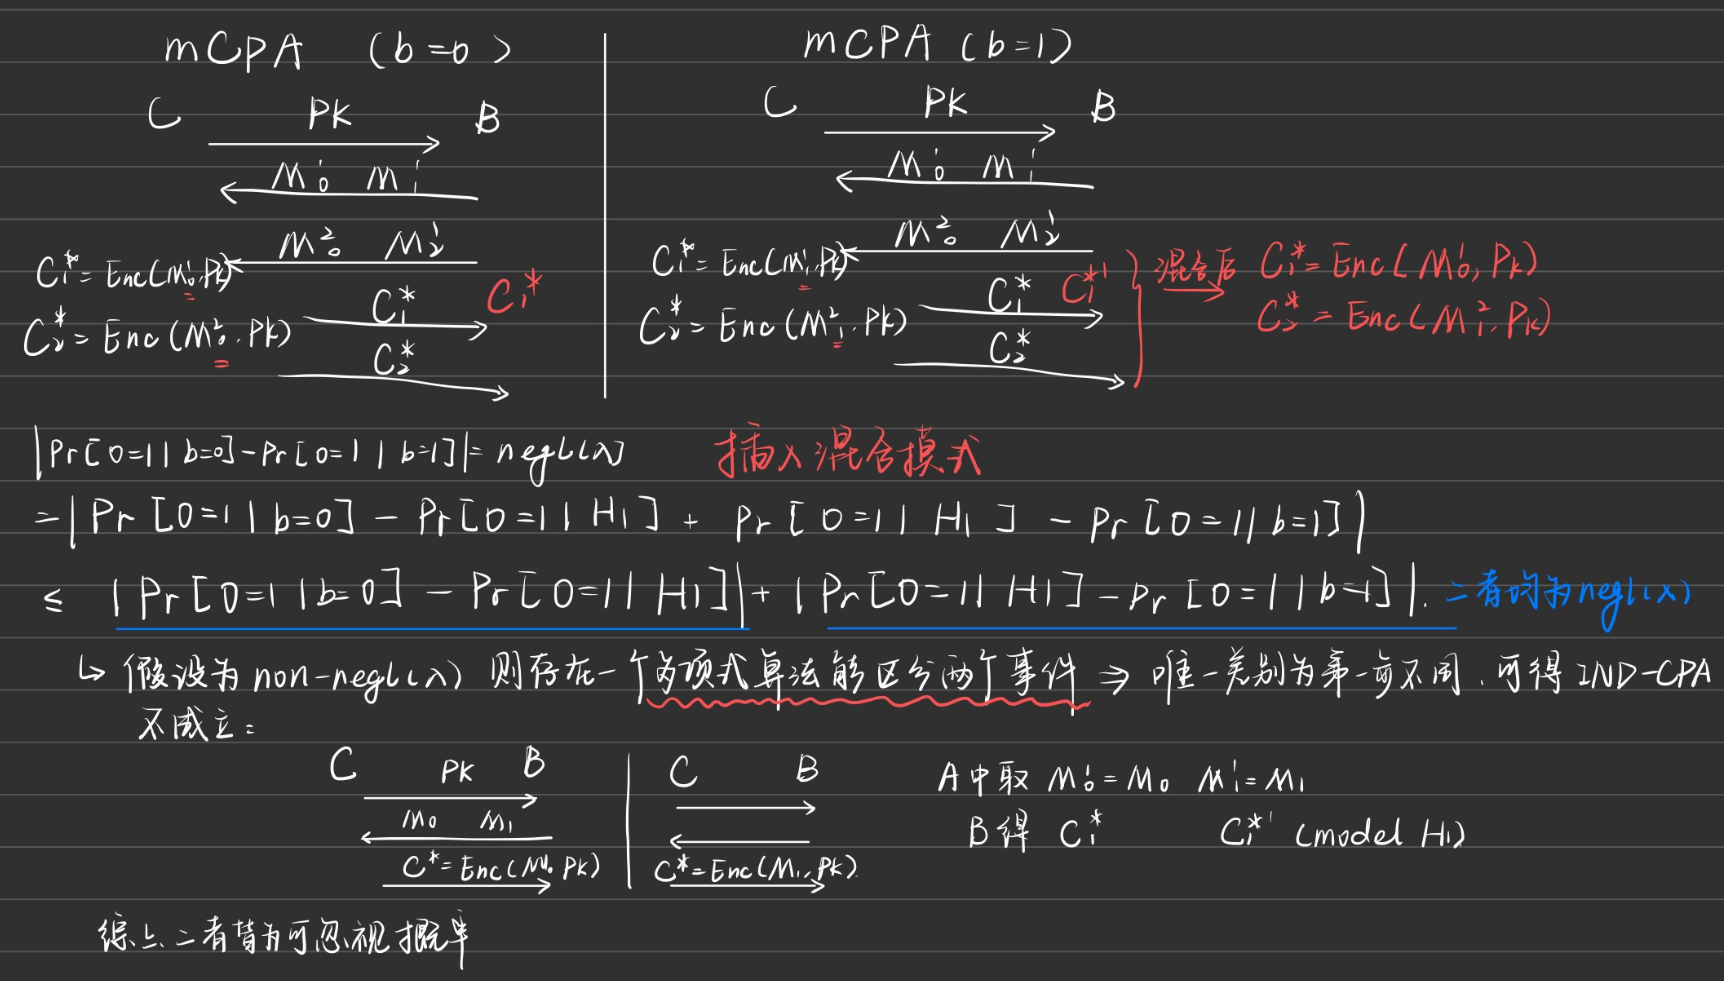 mCPA (b=0)
C PK B
M₀¹ M₁¹
M₀² M₂¹
C₁* = Enc(M₀¹, PK)
C₁* C₁*
C₂* = Enc(M₀², PK)
C₂*
mCPA (b=1)
C PK B
M₀¹ M₁¹
M₀² M₂¹
C₁* = Enc(M₁¹, PK)
C₁* C₁*'
C₂* = Enc(M₁², PK)
C₂*
混合后 C₁* = Enc(M₀¹, PK)
C₂* = Enc(M₁², PK)
|Pr[0=1|b=0]-Pr[0=1|b=1]|= negl(λ) 插入混合模式
=|Pr[0=1|b=0] - Pr[0=1|H₁] + Pr[0=1|H₁] - Pr[0=1|b=1]|
≤ |Pr[0=1|b=0] - Pr[0=1|H₁]| + |Pr[0=1|H₁] - Pr[0=1|b=1]|. 二者均为negl(λ)
↳ 假设为 non-negl(λ) 则存在一个多项式算法能区分两个事件 ⇒ 唯一差别为第一步不同, 可得 IND-CPA
不成立:
C PK B
M₀ M₁
C* = Enc(M₀, PK)
C B
C* = Enc(M₁, PK)
A中取 M₀¹ = M₀ M₁¹ = M₁
B得 C₁* C₁*' (model H₁)
综上二者皆为可忽视概率